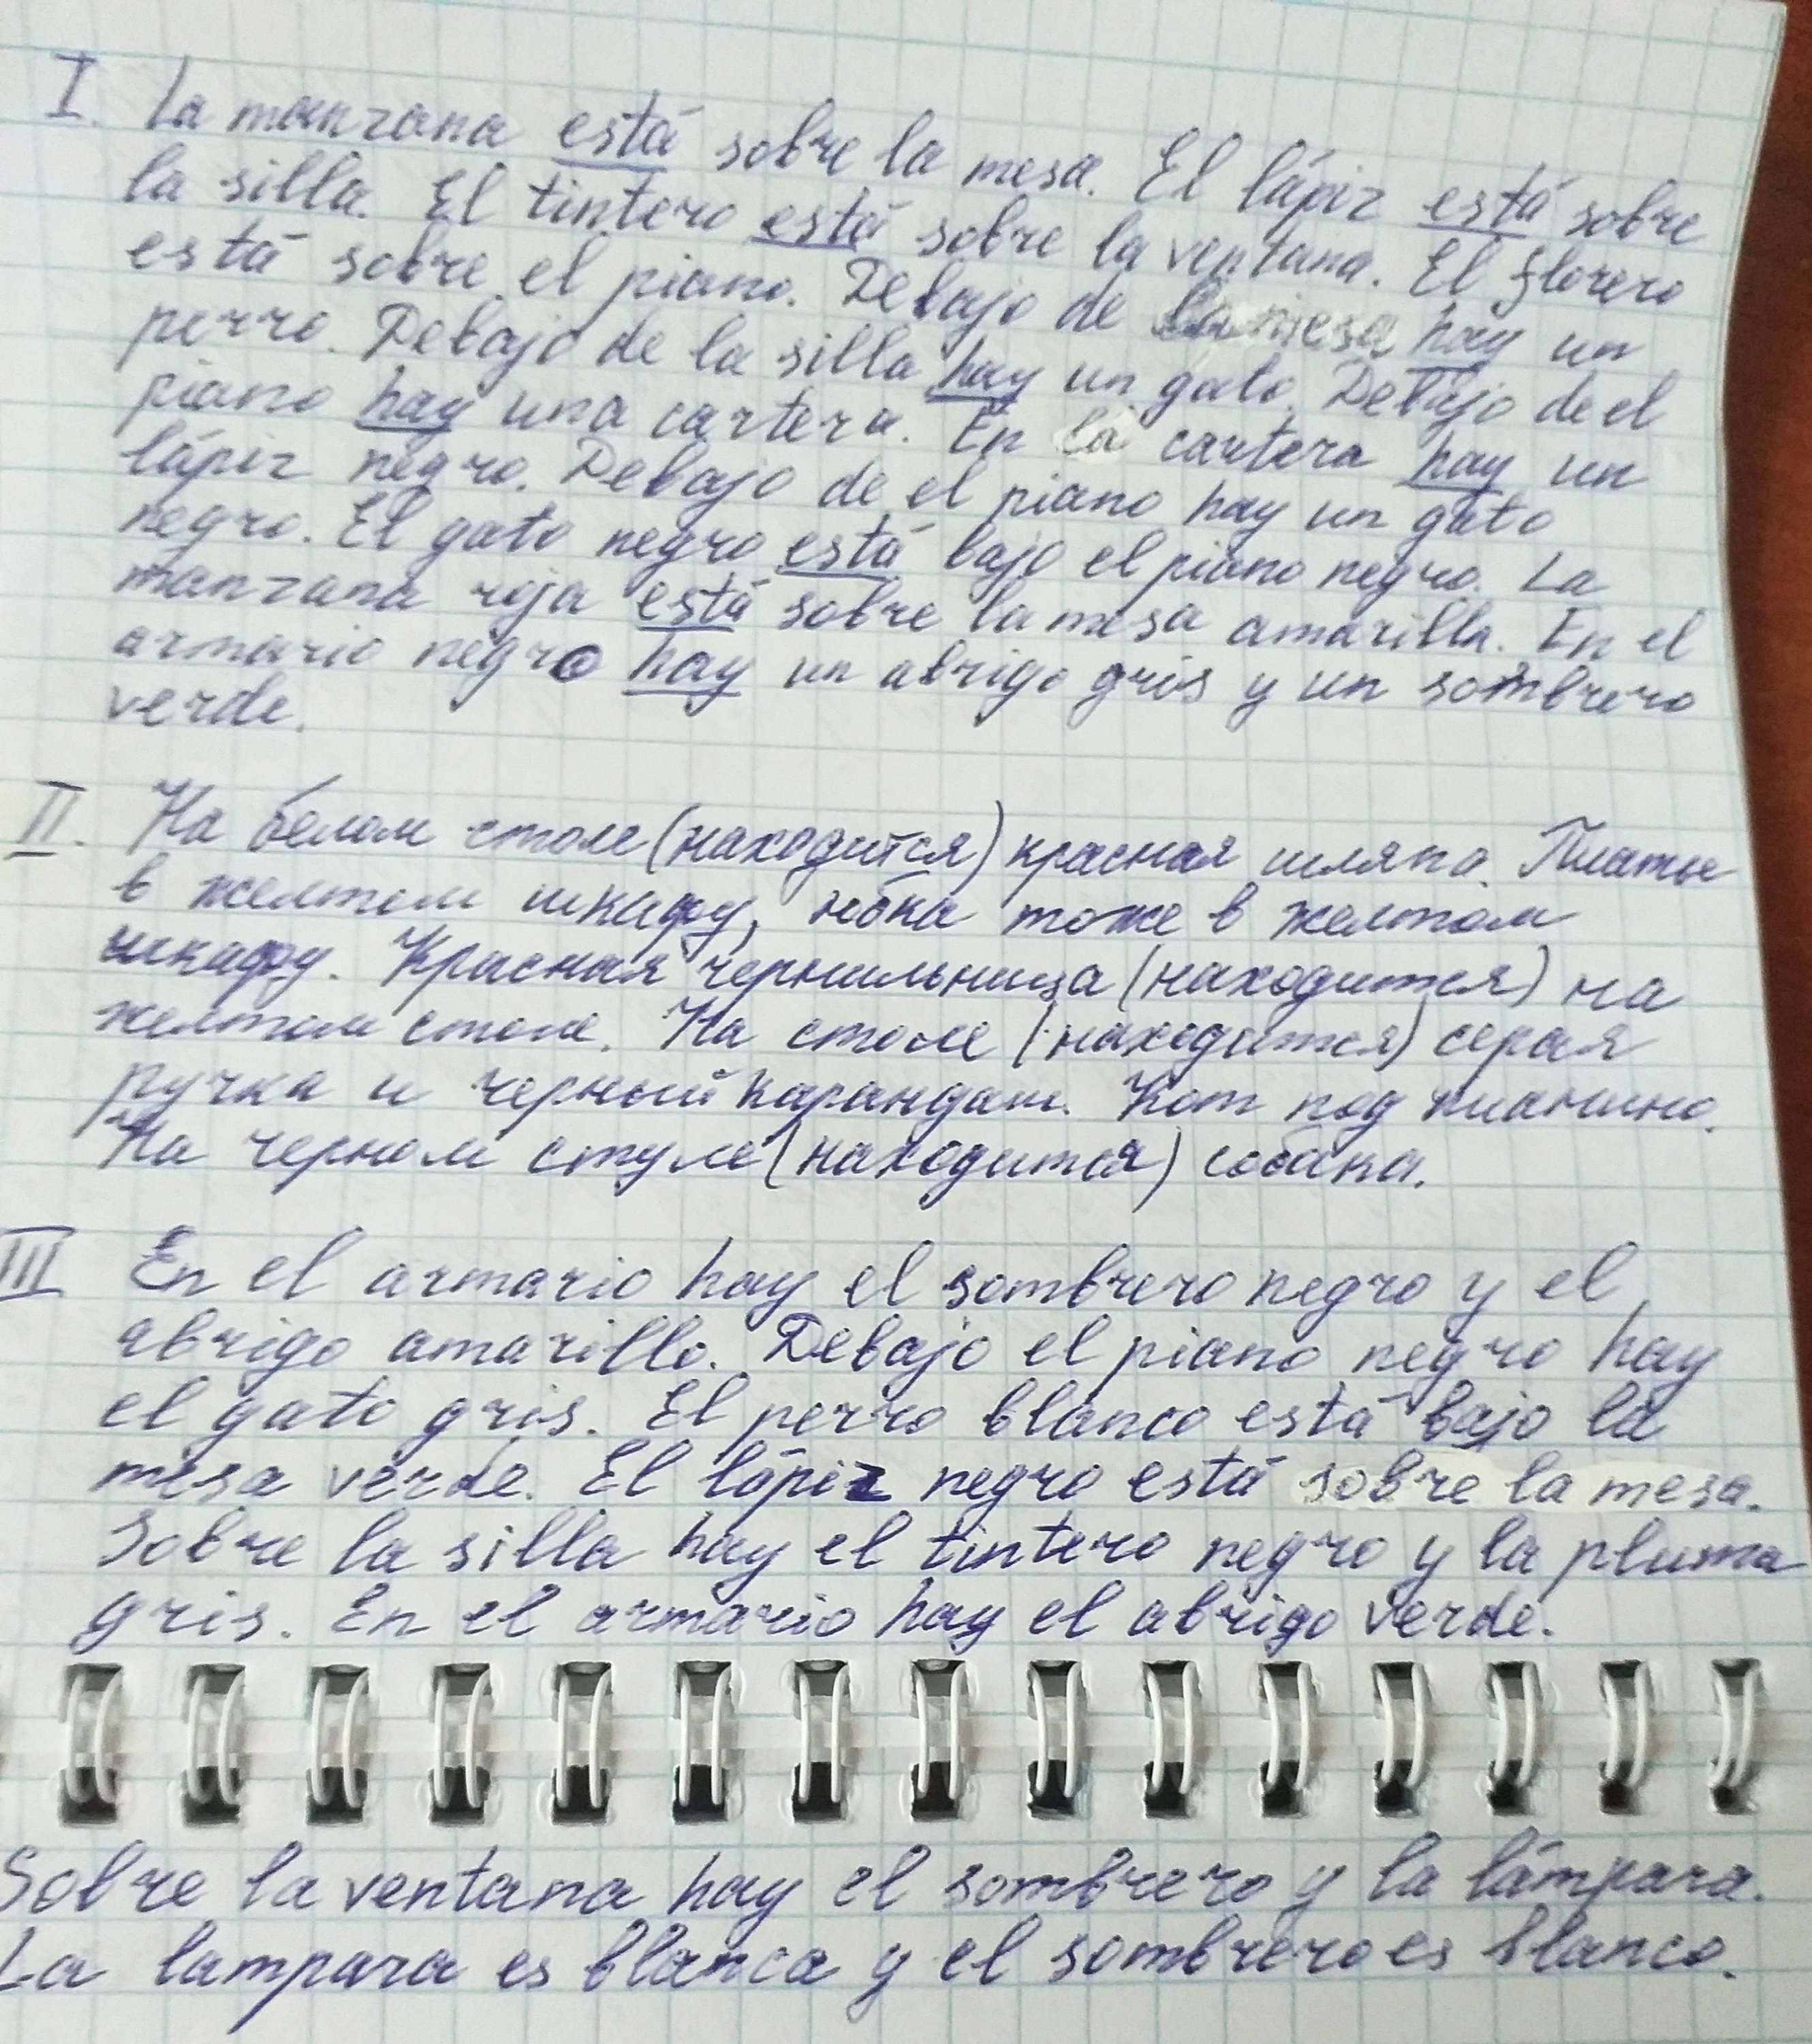 I. La manzana está sobre la mesa. El lápiz está sobre
la silla. El tintero está sobre la ventana. El florero
está sobre el piano. Debajo de la mesa hay un
perro. Debajo de la silla hay un gato. Debajo de el
piano hay una cartera. En la cartera hay un
lápiz negro. Debajo de el piano hay un gato
negro. El gato negro está bajo el piano negro. La
manzana roja está sobre la mesa amarilla. En el
armario negro hay un abrigo gris y un sombrero
verde.
II. На белом столе (находится) красная шляпа. Платье
в желтом шкафу, юбка тоже в желтом
шкафу. Красная чернильница (находится) на
желтом столе. На столе (находится) серая
ручка и черный карандаш. Кот под пианино.
На черном стуле (находится) собака.
III En el armario hay el sombrero negro y el
abrigo amarillo. Debajo el piano negro hay
el gato gris. El perro blanco está bajo la
mesa verde. El lápiz negro está sobre la mesa.
Sobre la silla hay el tintero negro y la pluma
gris. En el armario hay el abrigo verde.
Sobre la ventana hay el sombrero y la lámpara.
La lampara es blanca y el sombrero es blanco.